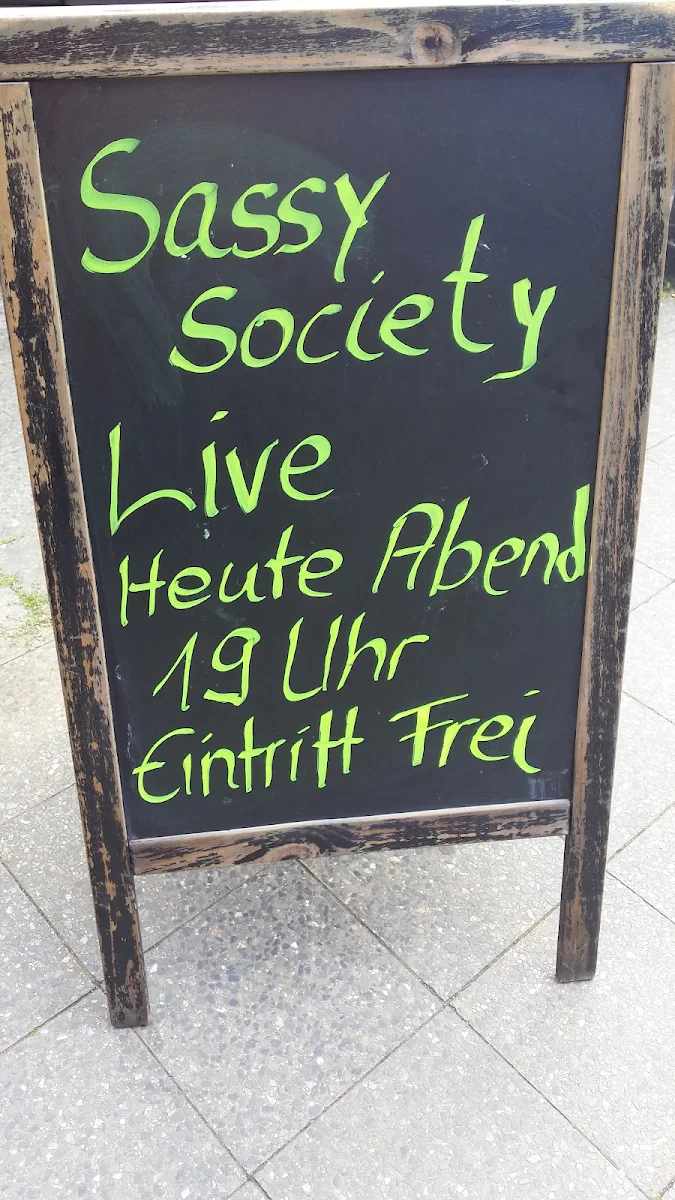 Sassy
Society
Live
Heute Abend
19 Uhr
Eintritt Frei